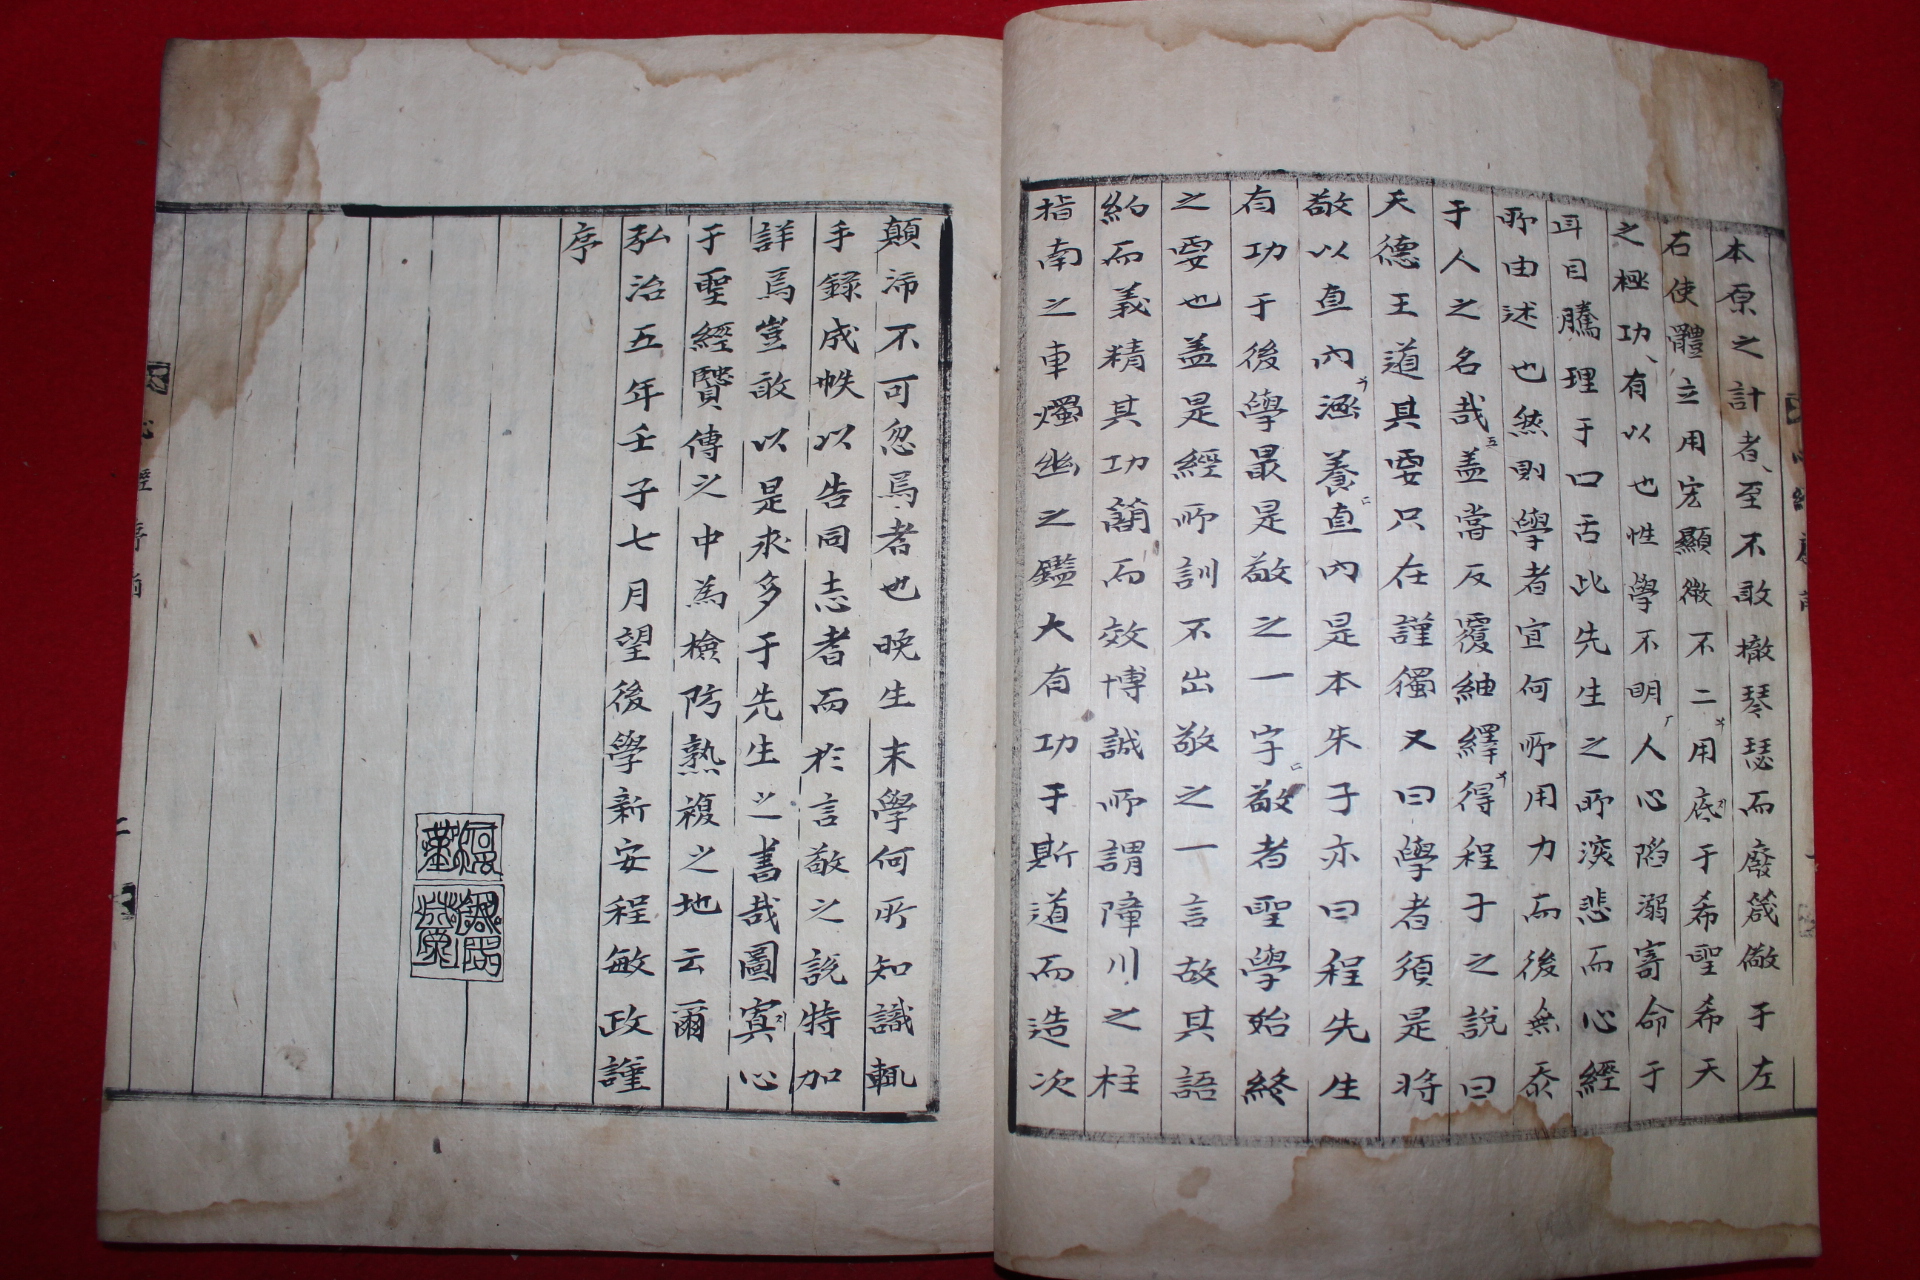 本原之計者至不敢撤琴瑟而廢箴儆于左
右使體立用宏顯微不二用底于希聖希天
之極功有以也性學不明人心陷溺寄命于
耳目騰理于口舌此先生之所深悲而心經
所由述也然則學者宜何所用力而後無忝
于人之名哉盖嘗反覆紬繹得程子之說曰
天德王道其要只在謹獨又曰學者須是將
敬以直內涵養直內是本朱子亦曰程先生
有功于後學最是敬之一字敬者聖學始終
之要也盖是經所訓不出敬之一言故其語
約而義精其功簡而效博誠所謂障川之柱
指南之車燭幽之鑑大有功于斯道而造次
顛沛不可忽焉者也晚生末學何所知識輒
手錄成帙以告同志者而於言敬之說特加
詳焉豈敢以是求多于先生之書哉圖寘心
于聖經賢傳之中為檢防熟複之地云爾
弘治五年壬子七月望後學新安程敏政謹
序
心經序
二